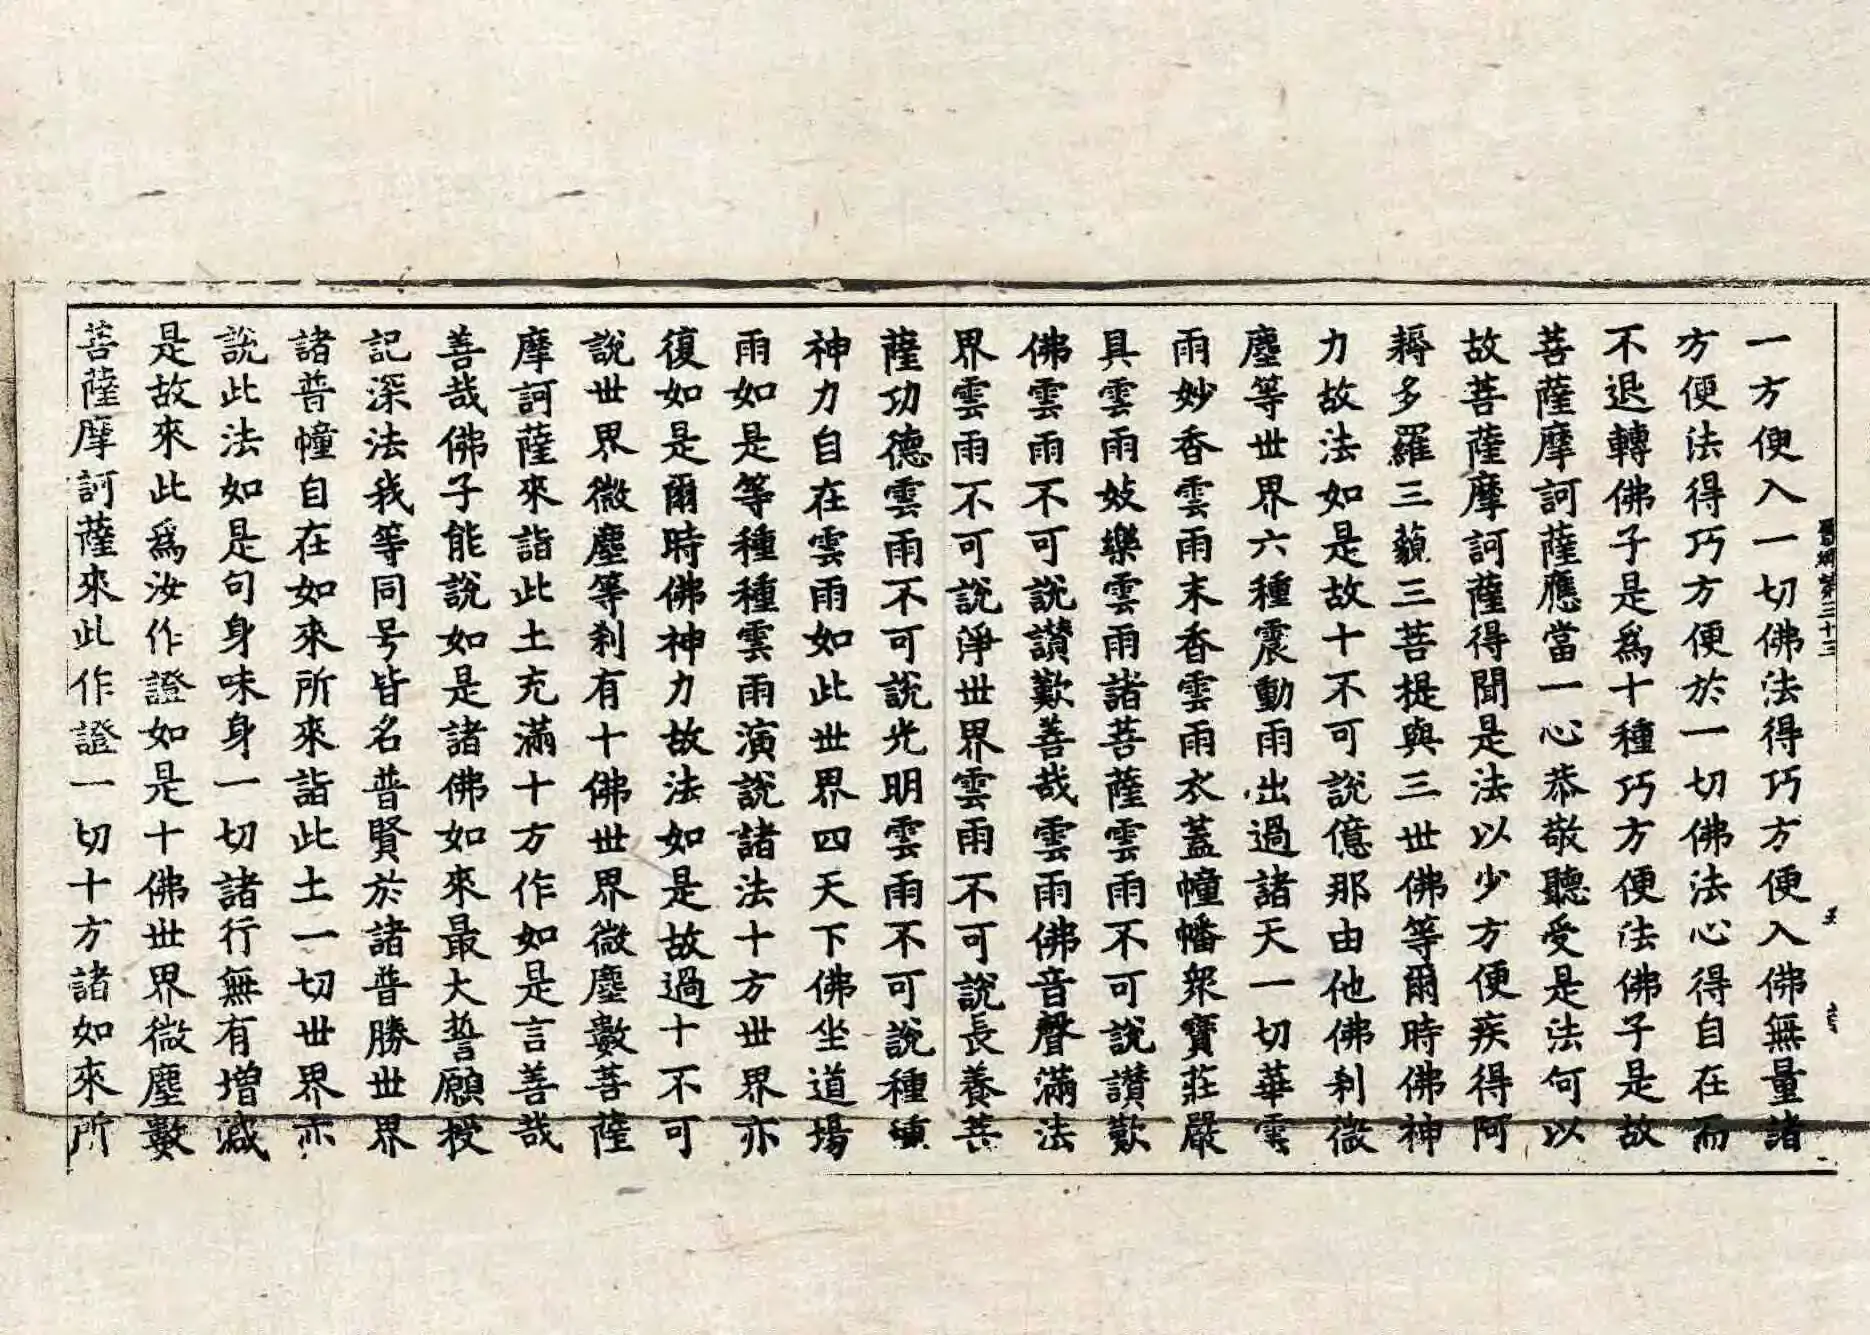 一方便入一切佛法得巧方便入佛無量諸
方便法得巧方便於一切佛法心得自在而
不退轉佛子是爲十種巧方便法佛子是故
菩薩摩訶薩應當一心恭敬聽受是法何以
故菩薩摩訶薩得聞是法以少方便疾得阿
耨多羅三藐三菩提與三世佛等爾時佛神
力故法如是故十不可說億那由他佛刹微
塵等世界六種震動雨出過諸天一切華雲
雨妙香雲雨末香雲雨衣蓋幢幡衆寶莊嚴
具雲雨妓樂雲雨諸菩薩雲雨不可說讃歎
佛雲雨不可說讃歎善哉雲雨佛音聲滿法
界雲雨不可說淨世界雲雨不可說長養菩
薩功德雲雨不可說光明雲雨不可說種種
神力自在雲雨如此世界四天下佛坐道場
雨如是等種種雲雨演說諸法十方世界亦
復如是爾時佛神力故法如是故過十不可
說世界微塵等刹有十佛世界微塵數菩薩
摩訶薩來詣此土充滿十方作如是言善哉
善哉佛子能說如是諸佛如來最大誓願授
記深法我等同号皆名普賢於諸普勝世界
諸普幢自在如來所來詣此土一切世界亦
說此法如是句身味身一切諸行無有增減
是故來此爲汝作證如是十佛世界微塵數
菩薩摩訶薩來此作證一切十方諸如來所